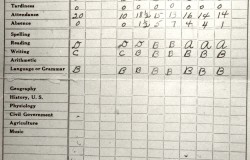 Tardiness 0 0 0 0 0 0 0 0
Attendance 20 10 18½ 15 13 16 14 14
Absence 0 0 1½ 5 7 4 4 1
Spelling
Reading D D D E E A A A
Writing C C B B B B B B
Arithmetic
Language or Grammar B B B B B B B B
Geography
History, U.S.
Physiology
Civil Government
Agriculture
Music